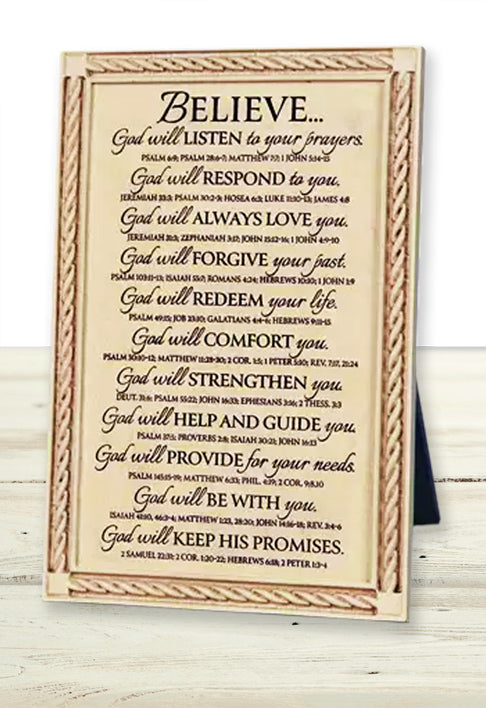 BELIEVE...
God will LISTEN to your prayers.
PSALM 6:9; PSALM 28:6-7; MATTHEW 7:7; 1 JOHN 5:14-15
God will RESPOND to you.
JEREMIAH 33:3; PSALM 30:2-3; HOSEA 6:3; LUKE 11:10-13; JAMES 4:8
God will ALWAYS LOVE you.
JEREMIAH 31:3; ZEPHANIAH 3:17; JOHN 15:12-16; 1 JOHN 4:9-10
God will FORGIVE your past.
PSALM 103:11-13; ISAIAH 55:7; ROMANS 4:24; HEBREWS 10:20; 1 JOHN 1:9
God will REDEEM your life.
PSALM 49:15; JOB 23:10; GALATIANS 4:4-6; HEBREWS 9:11-15
God will COMFORT you.
PSALM 30:10-12; MATTHEW 11:28-30; 2 COR. 1:5; 1 PETER 5:10; REV. 7:17, 21:24
God will STRENGTHEN you.
DEUT. 31:6; PSALM 55:22; JOHN 16:33; EPHESIANS 3:16; 2 THESS. 3:3
God will HELP AND GUIDE you.
PSALM 37:5; PROVERBS 2:8; ISAIAH 30:21; JOHN 16:13
God will PROVIDE for your needs.
PSALM 145:15-19; MATTHEW 6:33; PHIL. 4:19; 2 COR. 9:8,10
God will BE WITH you.
ISAIAH 41:10, 46:3-4; MATTHEW 1:23, 28:20; JOHN 14:16-18; REV. 3:4-6
God will KEEP HIS PROMISES.
2 SAMUEL 22:31; 2 COR. 1:20-22; HEBREWS 6:18; 2 PETER 1:3-4